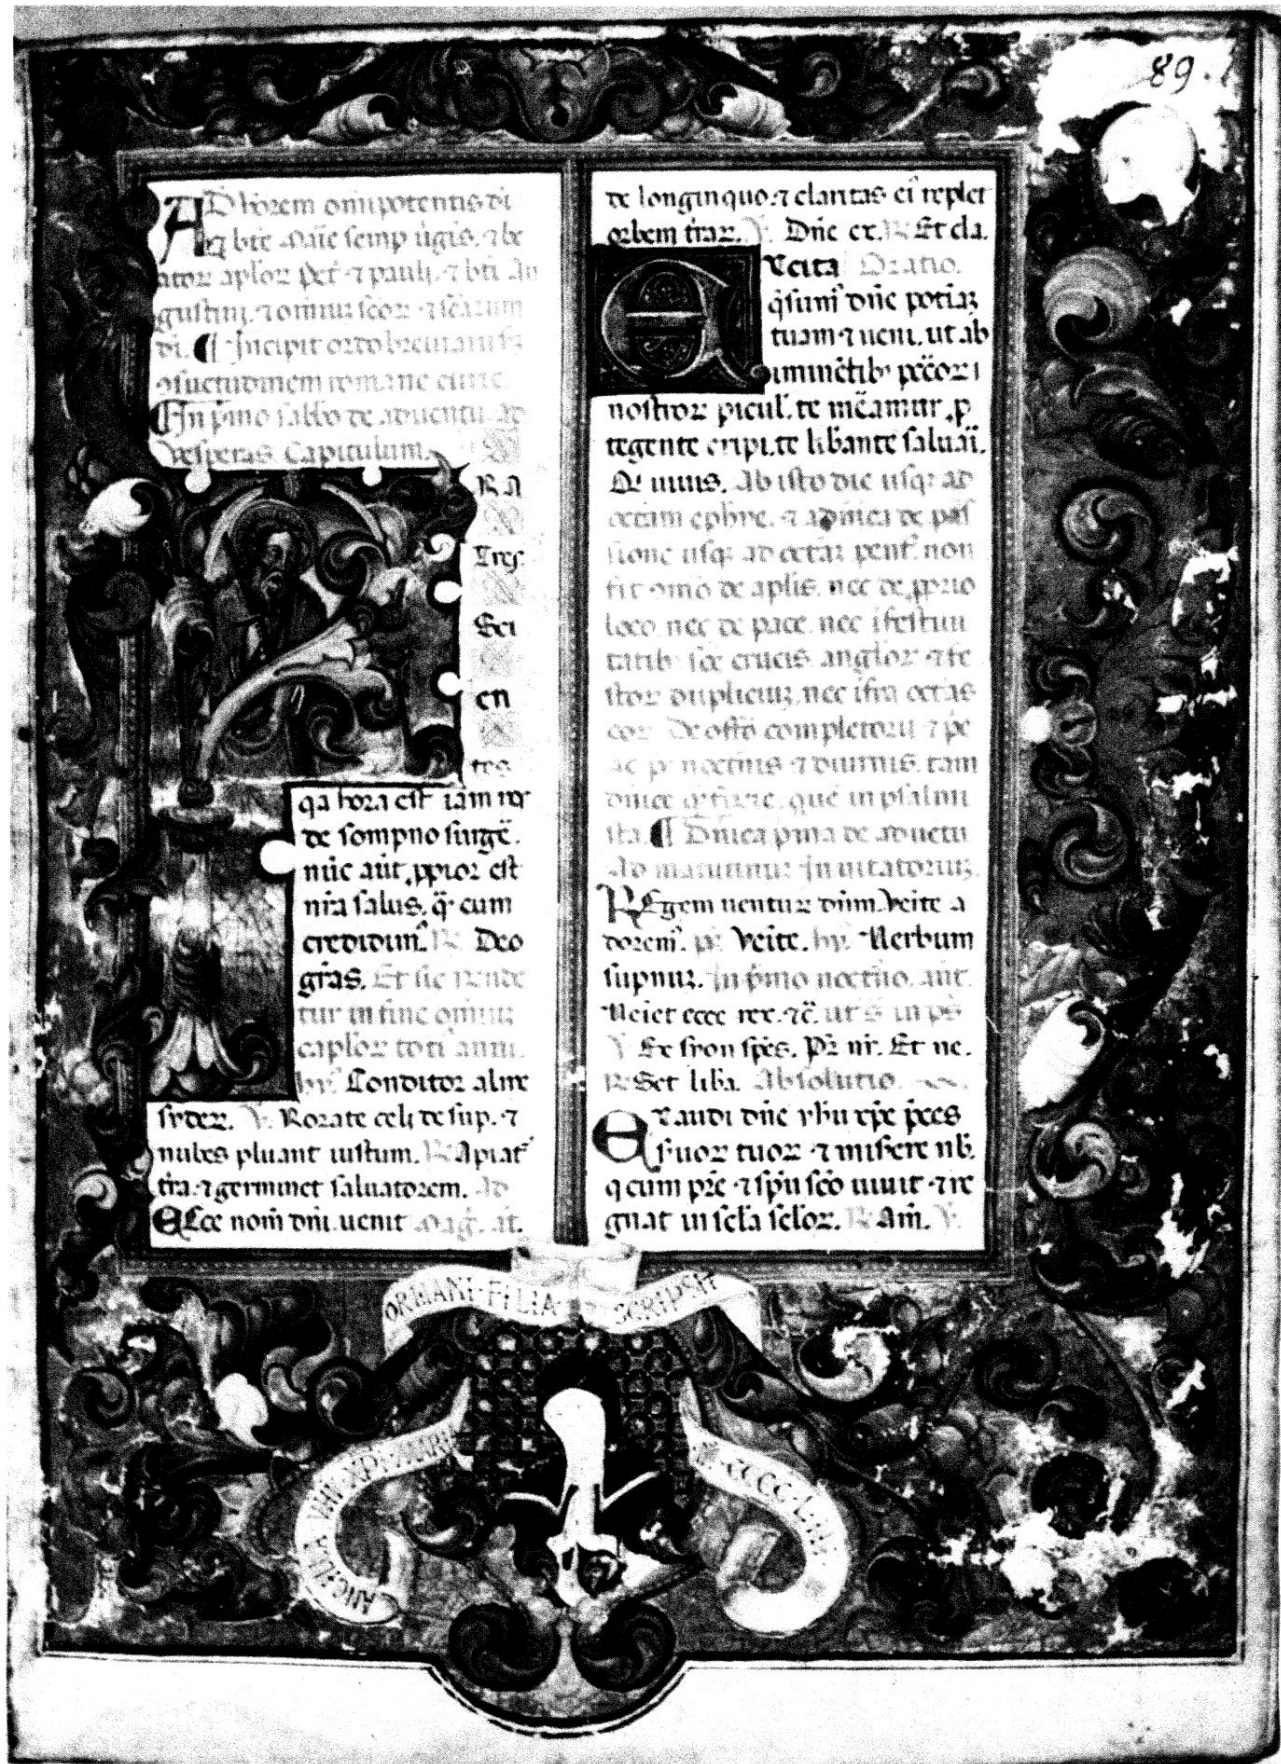 89.
AD honorem omnipotentis di
bte Marie semp ugis. ⁊ be
ator aplor Pet ⁊ pauli. ⁊ bti Au
gustini. ⁊ omnium scor ⁊ scarum
di. ¶ Incipit ordo breuiarii
osuetudinem romane curie.
In pmo sabbo de aduentu ad
vesperas Capitulum.
RA
tres
Sci
en
tes
qa hora est iam nos
de sompno surge.
nūc aūt ꝓpior est
nr̄a salus. q̄ cum
credidim. R Deo
gr̄as. Et sic rende
tur in fine omniū
caplor toti anni.
hy. Conditor alme
syder. V. Rorate celi desup. ⁊
nubes pluant iustum. R Apiat
tr̄a. ⁊ germinet saluatorem. Ad
Ecce nom̄ dni. uenit Mag. at.
de longinquo. ⁊ claritas ei replet
orbem trar. V. Dne ex. R Et cla.
Excita Oratio.
q̄sum dne potiaȝ
tuam ⁊ ueni. ut ab
iminētib pcc̄or
nostror picul. te mēamur ꝓ
tegente eripi. te libante saluai.
Q uiuis. Ab isto die usqȝ ad
octam ephye. ⁊ a dnica de pas
sione usqȝ ad octaȝ pent. non
fit omo de aplis. nec de ꝓprio
loco nec de pace. nec i festiui
tatib sce crucis anglor ⁊ fe
stor dupliciuȝ. nec ifra octas
eor. De offo completorii ⁊ pe
ac p nocturnis ⁊ diurnis. tam
dnice q̄ ferie. que in psalmi
sta. ¶ Dnica pma de aduētu
Ad matutinuȝ Inuitatoriuȝ.
REgem uentur dnm. Veite a
dorem. p̄ Veite. hy. Verbum
supnuȝ. In pmo nocturno. ant.
Veiet ecce rex. ⁊c̄. ut s in ps
V Ex syon spes. Pr̄ nr̄. Et ne.
R Set liba. Absolutio.
Exaudi dne yhu xp̄e p̄ces
suor tuor ⁊ misere nb.
q cum pr̄e ⁊ sp̄u sc̄o uiuit ⁊ re
gnat in secla seclor. R Am̄. V.
ORMANI · FILIA SCRIPSIT
ANGELA
CCCC